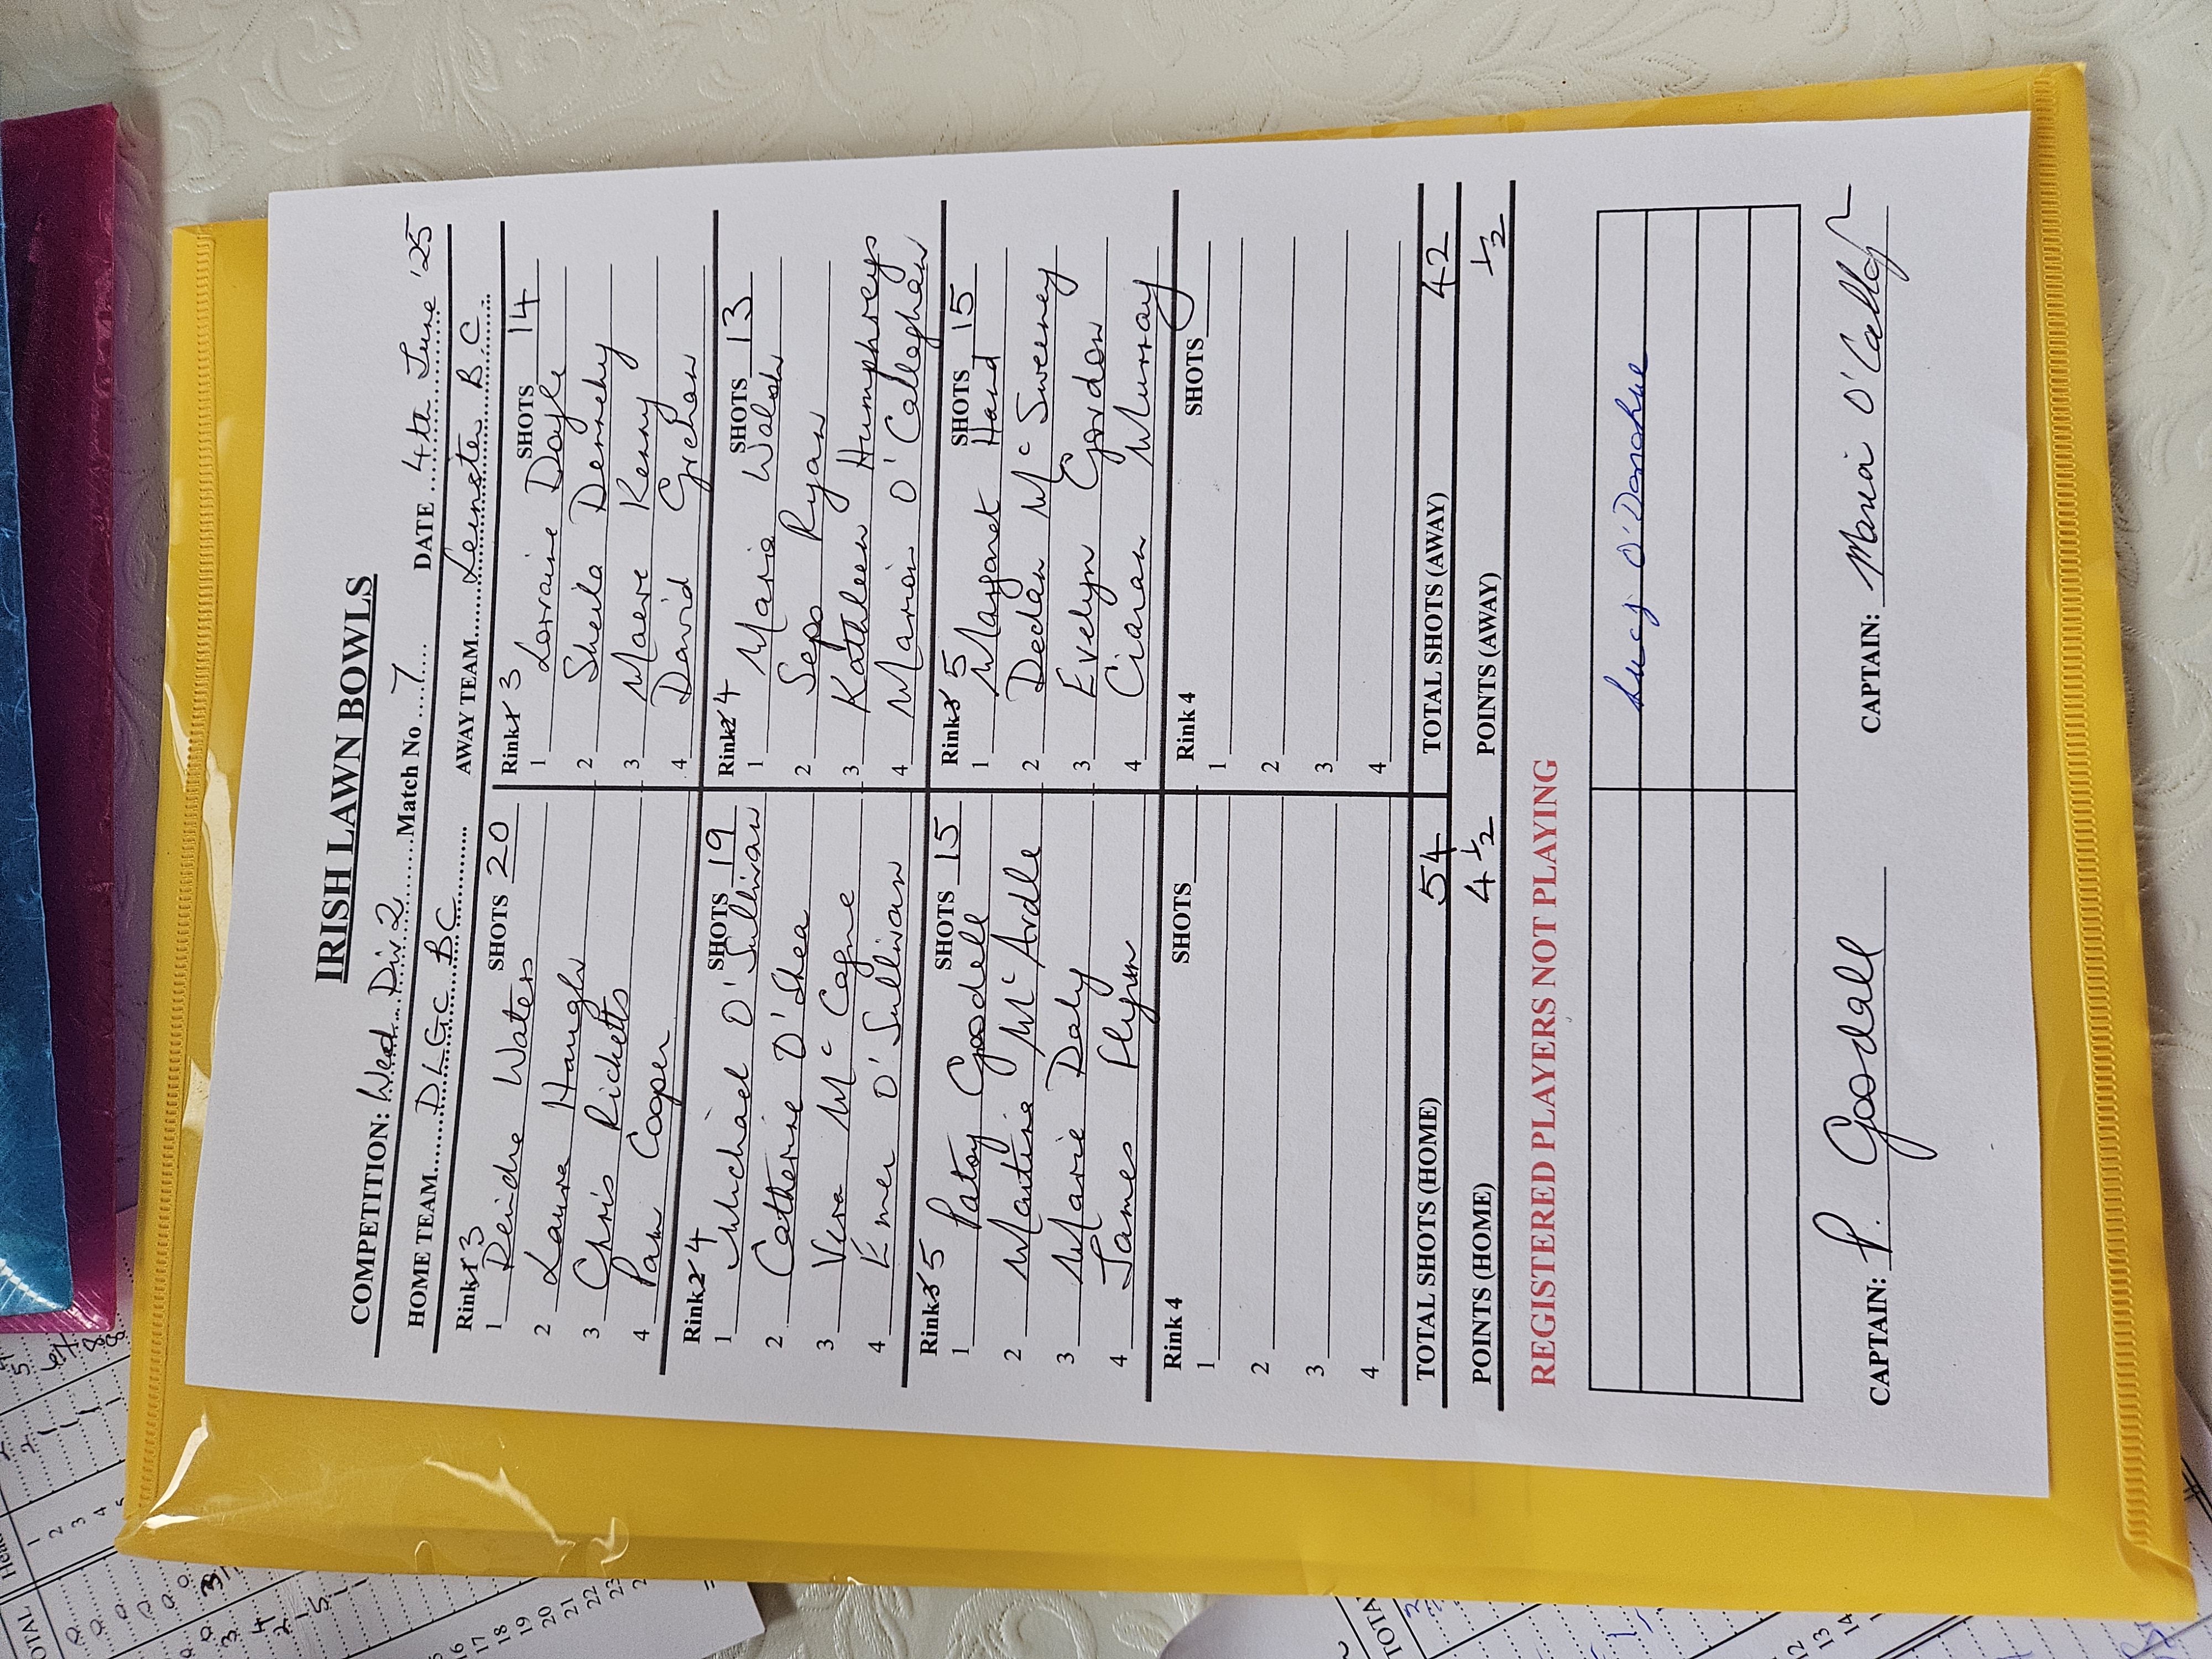 IRISH LAWN BOWLS
COMPETITION: Wed Div 2 Match No 7 DATE 4th June '25
HOME TEAM D L G C BC AWAY TEAM Leinster B.C.
Rink 3 SHOTS 20
1 Deirdre Waters
2 Laura Haugh
3 Chris Ricketts
4 Pam Cooper
Rink 3 SHOTS 14
1 Lorraine Doyle
2 Sheila Dennehy
3 Maeve Kenny
4 David Grehan
Rink 4 SHOTS 19
1 Michael O'Sullivan
2 Catherine O'Shea
3 Vera Mc Cagne
4 Emer O'Sullivan
Rink 4 SHOTS 13
1 Maria Walsh
2 Sepo Ryan
3 Kathleen Humphreys
4 Marion O'Callaghan
Rink 5 SHOTS 15
1 Patsy Goodall
2 Martina Mc Ardle
3 Marie Daly
4 James Flynn
Rink 5 SHOTS 15
1 Margaret Hand
2 Declan Mc Sweeney
3 Evelyn Gordon
4 Ciaran Murray
Rink 4 SHOTS
1
2
3
4
Rink 4 SHOTS
1
2
3
4
TOTAL SHOTS (HOME) 54 TOTAL SHOTS (AWAY) 42
POINTS (HOME) 4 1/2 POINTS (AWAY) 1/2
REGISTERED PLAYERS NOT PLAYING
Lucy O'Donohue
CAPTAIN: P. Goodall CAPTAIN: Maria O'Callagh